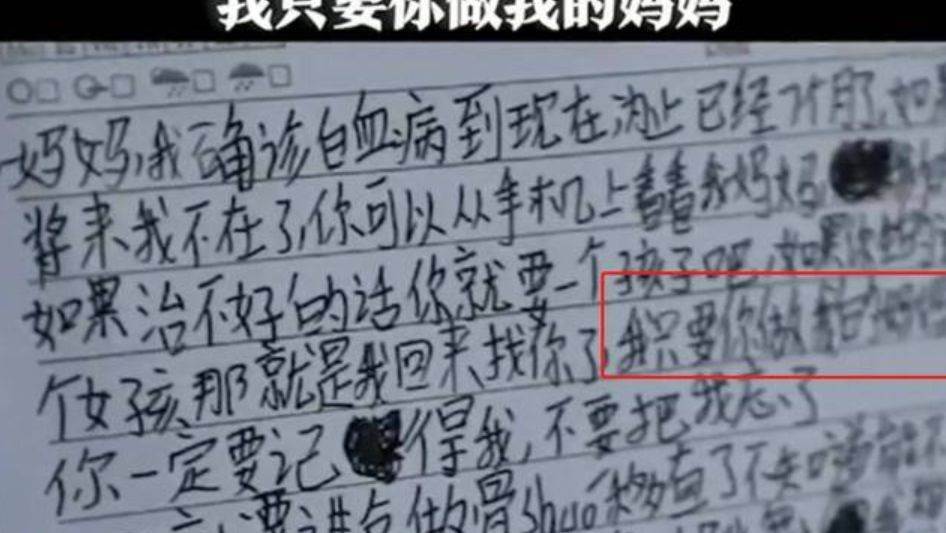 我只要你做我的妈妈
妈妈,我确诊白血病到现在,为止已经7个月了,如果
将来我不在了,你可以从手机上看看我妈妈,
如果治不好的话你就要一个孩子吧,如果你
个女孩,那就是我回来找你了,我只要你做我的妈妈
你一定要记得我,不要把我忘了
做骨shuo移植了不知道能不